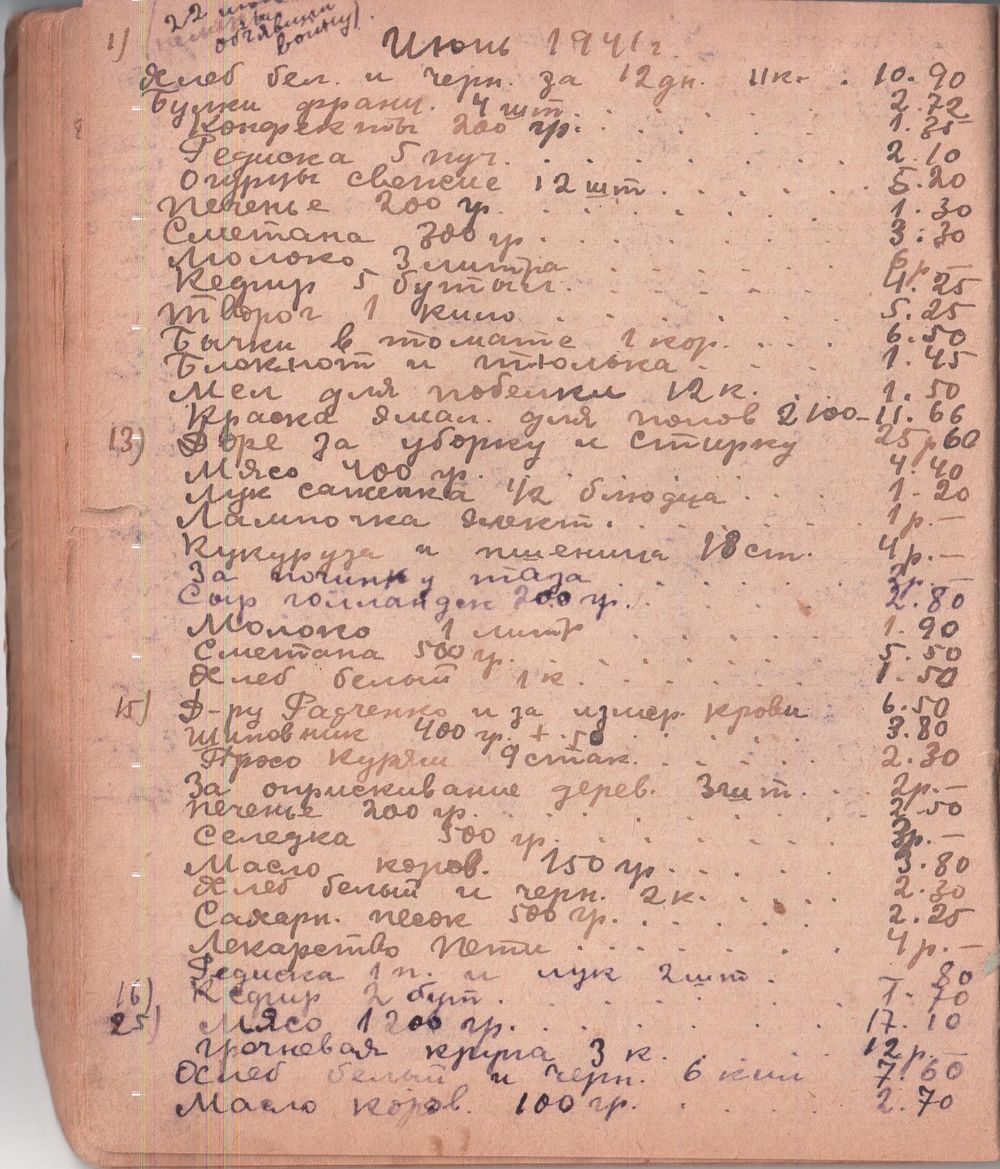 22 июня
немцы
объявили
войну)
1) Июнь 1941 г.
Хлеб бел. и черн. за 12 дн. 11 к. . 10.90
Булки франц. 4 шт. 2.72
Конфекты 200 гр. 1.35
Редиска 5 пуч. 2.10
Огурцы свежие 12 шт. 5.20
Печенье 200 гр. 1.30
Сметана 300 гр. 3.30
Молоко 3 литра 6 р. —
Кефир 5 бутыл. 4.25
Творог 1 кило 5.25
Бычки в томате 1 кор. 6.50
Блокнот и тюлька 1.45
Мел для побелки 12 к. 1.50
Краска эмал. для полов 2100 - 11.66
13) Доре за уборку и стирку 25 р 60
Мясо 400 гр. 4.40
Лук саженка 1/2 блюдца 1.20
Лампочка элект. 1 р. —
Кукуруза и пшеница 18 ст. 4 р. —
За починку таза 2 р. —
Сыр голландск 200 гр. 2.80
Молоко 1 литр 1.90
Сметана 500 гр. 5.50
Хлеб белый 1 к. 1.50
15) Д-ру Радченко и за измер. крови 6.50
Шиповник 400 гр. + 50 3.80
Просо курям 9 стак. 2.30
За оприскивание дерев. 3 шт. 2 р. —
Печенье 200 гр. 2.50
Селедка 500 гр. 3 р. —
Масло коров. 150 гр. 3.80
Хлеб белый и черн. 2 к. 2.30
Сахарн. песок 500 гр. 2.25
Лекарство Пети 4 р. —
Редиска 1 п. и лук 2 шт. — 80
16) Кефир 2 бут. 1.70
25) Мясо 1200 гр. 17.10
Гречневая крупа 3 к. 12 р. —
Хлеб белый и черн. 6 кил 7.60
Масло коров. 100 гр. 2.70